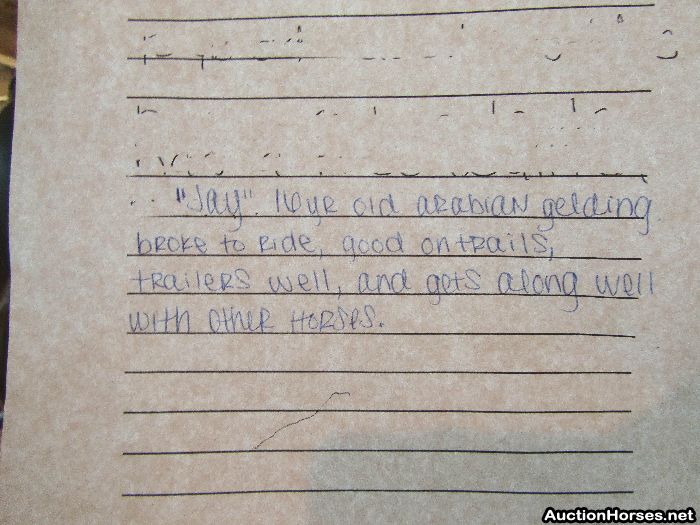 "Jay". 16yr old arabian gelding
broke to ride, good on trails,
trailers well, and gets along well
with other horses.
AuctionHorses.net